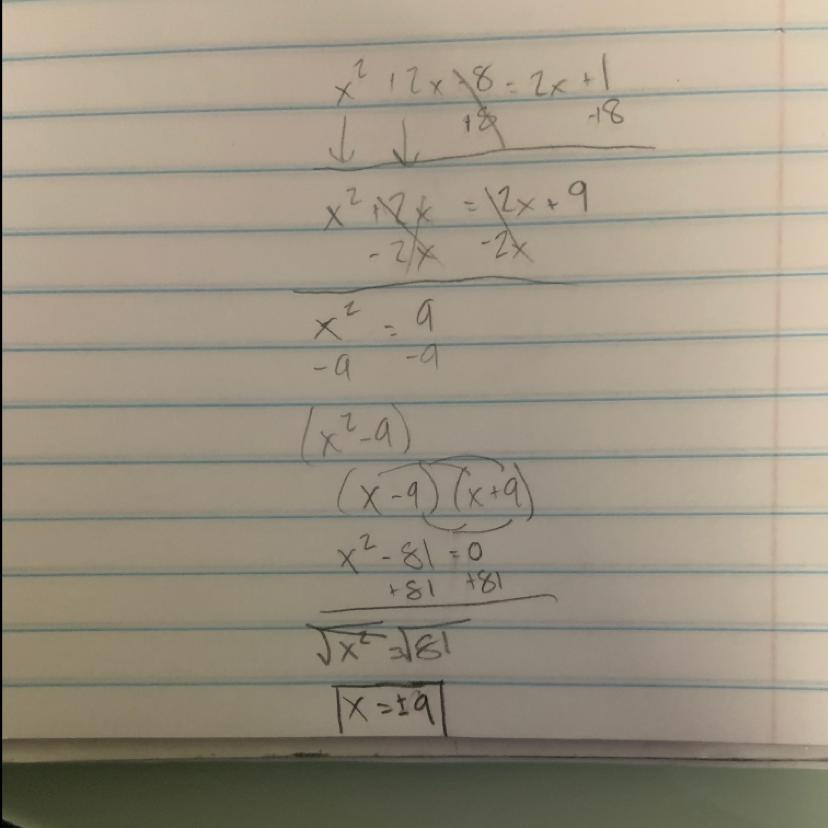 x² + 2x - 8 = 2x + 1
+8 +8
x² + 2x = 2x + 9
- 2x - 2x
x² = 9
-9 -9
(x² - 9)
(x - 9) (x + 9)
x² - 81 = 0
+81 +81
√x² = √81
x = ±9